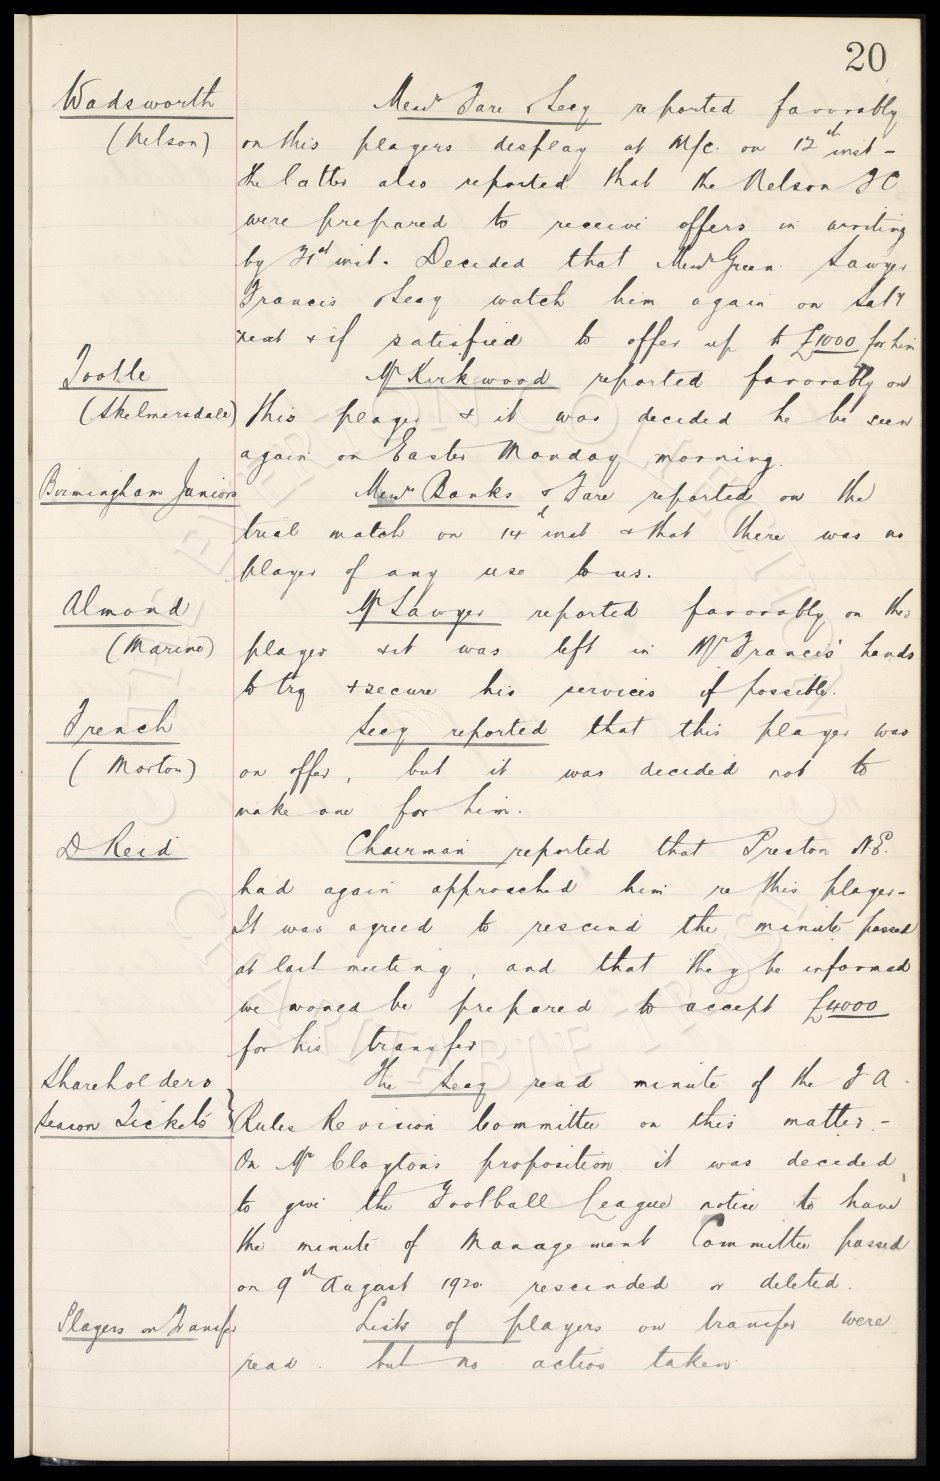 20
Wadsworth Messrs Fare & Secy reported favorably
(Nelson) on this players display at M/c. on 12th inst -
the latter also reported that the Nelson F C
were prepared to receive offers in writing
by 31st inst. Decided that Messrs Green Sawyer
Francis & Secy watch him again on Satr
next & if satisfied to offer up to £1000 for him
Tootle Mr Kirkwood reported favorably on
(Skelmersdale) this player & it was decided he be seen
again on Easter Monday morning.
Birmingham Juniors Messrs Banks & Fare reported on the
trial match on 14th inst & that there was no
player of any use to us.
Almond Mr Sawyer reported favorably on this
(Marine) player & it was left in Mr Francis' hands
to try & secure his services if possible.
French Secy reported that this player was
(Morton) on offer, but it was decided not to
make one for him.
D Reid Chairman reported that Preston N.E.
had again approached him re this player -
It was agreed to rescind the minute passed
at last meeting, and that they be informed
we would be prepared to accept £4000
for his transfer
Shareholders The Secy read minute of the F A.
Season Tickets } Rules Revision Committee on this matter. -
On Mr Clayton's proposition it was decided
to give the Football League notice to have
the minute of Management Committee passed
on 9th August 1920 rescinded or deleted.
Players on Transfer Lists of players on transfer were
read. but no action taken